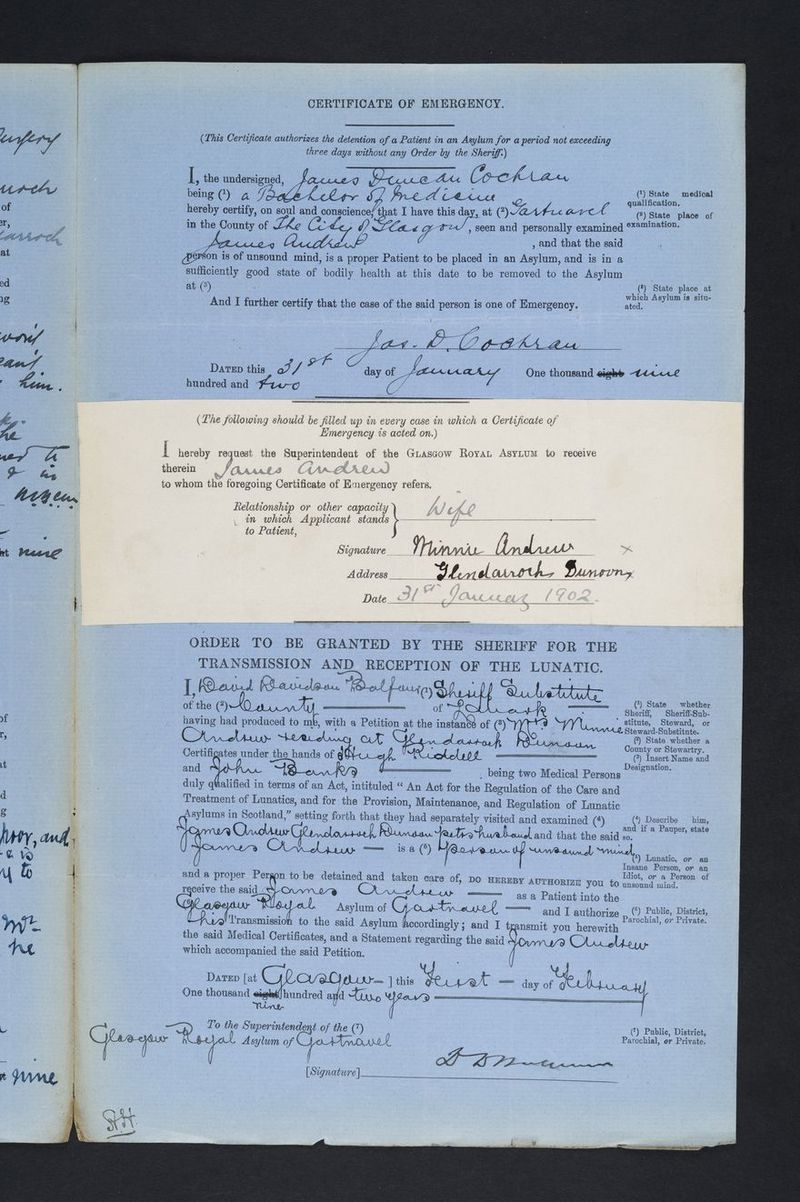 urgery
of
er,
at
ed
ng
won't
can't
him.
he
ned to
& in
nt nine
of
r,
at
d
g
poor, and
e is
y to
Mr
he
nine
CERTIFICATE OF EMERGENCY.
(This Certificate authorizes the detention of a Patient in an Asylum for a period not exceeding
three days without any Order by the Sheriff.)
I, the undersigned, James Duncan Cochran
being (¹) a Bachelor of Medicine
hereby certify, on soul and conscience, that I have this day, at (²) Gartnavel
in the County of The City of Glasgow, seen and personally examined
James Andrew, and that the said
person is of unsound mind, is a proper Patient to be placed in an Asylum, and is in a
sufficiently good state of bodily health at this date to be removed to the Asylum
at (³)
And I further certify that the case of the said person is one of Emergency.
(¹) State medical
qualification.
(²) State place of
examination.
(³) State place at
which Asylum is situ-
ated.
Jas. D. Cochran
DATED this 31st day of January One thousand eight nine
hundred and two
(The following should be filled up in every case in which a Certificate of
Emergency is acted on.)
I hereby request the Superintendent of the GLASGOW ROYAL ASYLUM to receive
therein James Andrew
to whom the foregoing Certificate of Emergency refers.
Relationship or other capacity
in which Applicant stands
to Patient,
Wife
Signature Minnie Andrew x
Address Glendarroch, Dunoon x
Date 31st January 1902.
ORDER TO BE GRANTED BY THE SHERIFF FOR THE
TRANSMISSION AND RECEPTION OF THE LUNATIC.
I, David Davidson Balfour (¹) Sheriff Substitute
of the (²) County of Lanark
having had produced to me, with a Petition at the instance of (³) Mrs Minnie
Andrew residing at Glendarroch Dunoon
Certificates under the hands of Hugh Riddell
and John Banks, being two Medical Persons
duly qualified in terms of an Act, intituled "An Act for the Regulation of the Care and
Treatment of Lunatics, and for the Provision, Maintenance, and Regulation of Lunatic
Asylums in Scotland," setting forth that they had separately visited and examined (⁴)
James Andrew Glendarroch Dunoon petrs husband and that the said
James Andrew is a (⁵) person of unsound mind
and a proper Person to be detained and taken care of, DO HEREBY AUTHORIZE you to
receive the said James Andrew as a Patient into the
Glasgow Royal Asylum of Gartnavel and I authorize
his Transmission to the said Asylum accordingly; and I transmit you herewith
the said Medical Certificates, and a Statement regarding the said James Andrew
which accompanied the said Petition.
(¹) State whether
Sheriff, Sheriff-Sub-
stitute, Steward, or
Steward-Substitute.
(²) State whether a
County or Stewartry.
(³) Insert Name and
Designation.
(⁴) Describe him,
and if a Pauper, state
so.
(⁵) Lunatic, or an
Insane Person, or an
Idiot, or a Person of
unsound mind.
(⁶) Public, District,
Parochial, or Private.
DATED [at Glasgow ] this First day of February
One thousand eight hundred and two years
nine
To the Superintendent of the (⁷)
Glasgow Royal Asylum of Gartnavel
(⁷) Public, District,
Parochial, or Private.
[Signature]